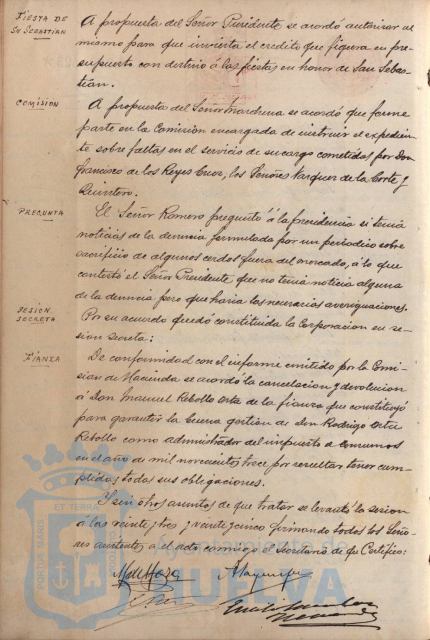 FIESTA DE
SN SEBASTIAN
A propuesta del Señor Presidente se acordó autorizar al
mismo para que invierta el crédito que figura en pre-
supuesto con destino á las fiestas en honor de San Sebas-
tián.
COMISION
A propuesta del Señor Marchena se acordó que forme
parte en la Comisión encargada de instruir el expedien-
te sobre faltas en el servicio de su cargo cometidas por Don
Francisco de los Reyes Cruz, los Señores Vazquez de la Corte y
Quintero.
PREGUNTA
El Señor Romero preguntó á la presidencia si tenía
noticias de la denuncia formulada por un periodico sobre
sacrificio de algunos cerdos fuera del mercado, á lo que
contestó el Señor Presidente que no tenia noticia alguna
de la denuncia pero que haria las necesarias averiguaciones.
SESION
SECRETA
Por su acuerdo quedó constituida la Corporacion en se-
sion secreta:
FIANZA
De conformidad con el informe emitido por la Comi-
sion de Hacienda se acordó la cancelacion y devolucion
á Don Manuel Rebollo Orta de la fianza que constituyó
para garantir la buena gestion de Don Rodrigo Orta
Rebollo como administrador del impuesto de consumos
en el año de mil novecientos trece por resultar tener cum-
plidas todas sus obligaciones.
Y sin otros asuntos de que tratar se levantó la sesion
á las veinte y tres y veinte y cinco firmando todos los Seño-
res asistentes al acto conmigo el Secretario de que Certifico:
PORTUS MARIS
ET TERRAE
Ayuntamiento de
HUELVA